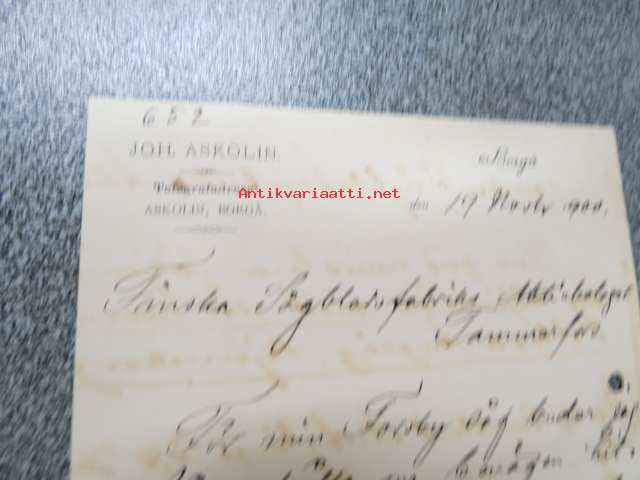 652
JOH. ASKOLIN.
Borgå
Telegrafadress:
Antikvariaatti.net
ASKOLIN, BORGÅ.
den 19 Novbr 1900.
Finska Sågbladsfabriks Aktiebolaget
Tammerfors
För min Forsby såg beder jag